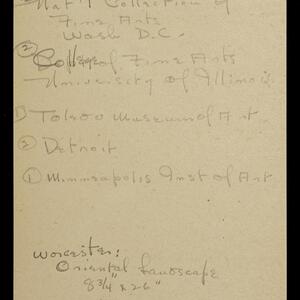 Nat'l Collection of
Fine Arts
Wash D.C.
② College of Fine Arts
University of Illinois
① Toledo Museum of Art
② Detroit
① Minneapolis Inst of Art
Worcester:
Oriental Landscape
8 3/4" x 26"